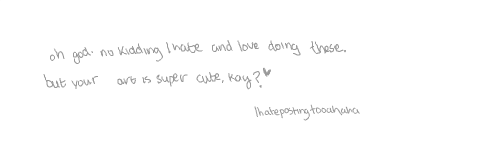 oh god. no kidding I hate and love doing these.
but your art is super cute, kay?♥
Ihatepostingtooahaha